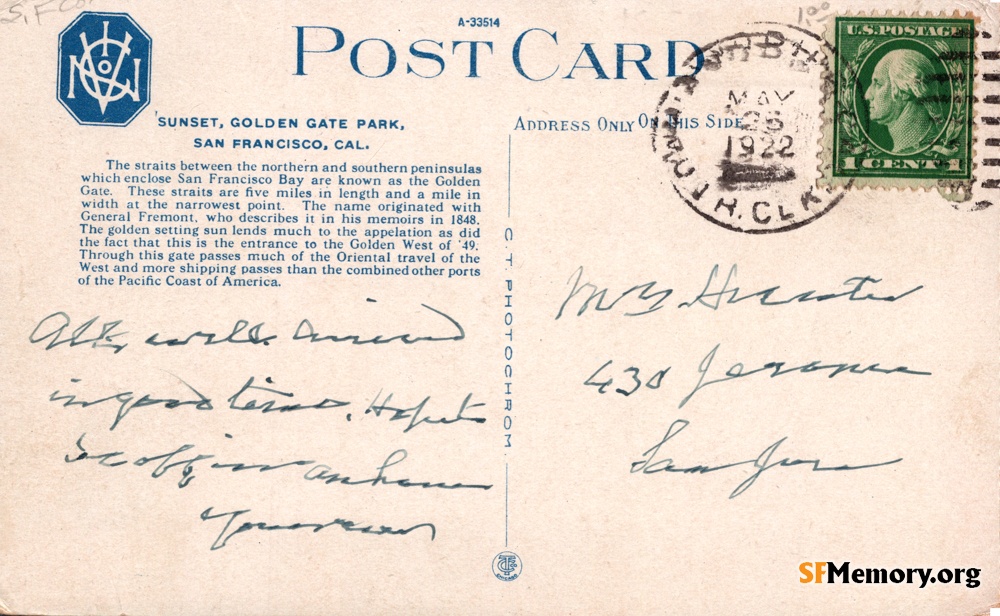 S.F. Co.
A-33514
POST CARD
100
U.S. POSTAGE
1 CENT 1
MAY
26
1922
R. CLK.
SUNSET, GOLDEN GATE PARK,
SAN FRANCISCO, CAL.
ADDRESS ONLY ON THIS SIDE
The straits between the northern and southern peninsulas
which enclose San Francisco Bay are known as the Golden
Gate. These straits are five miles in length and a mile in
width at the narrowest point. The name originated with
General Fremont, who describes it in his memoirs in 1848.
The golden setting sun lends much to the appelation as did
the fact that this is the entrance to the Golden West of '49.
Through this gate passes much of the Oriental travel of the
West and more shipping passes than the combined other ports
of the Pacific Coast of America.
C. T. PHOTOCHROM.
well. Arrived
in good time. Hope to
be off
430
San Jose
CHICAGO
SFMemory.org